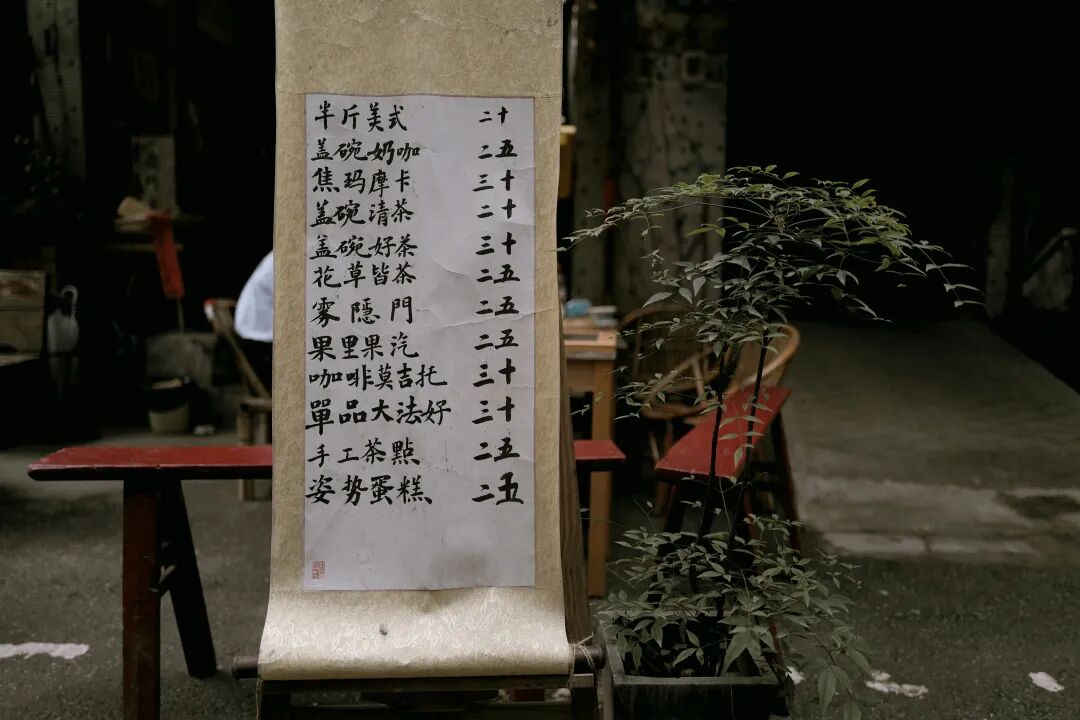 半斤美式 二十
盖碗奶咖 二五
焦玛摩卡 三十
盖碗清茶 二十
盖碗好茶 三十
花草皆茶 二五
雾隱門 二五
果里果汽 二五
咖啡莫吉托 三十
單品大法好 三十
手工茶點 二五
姿势蛋糕 二五